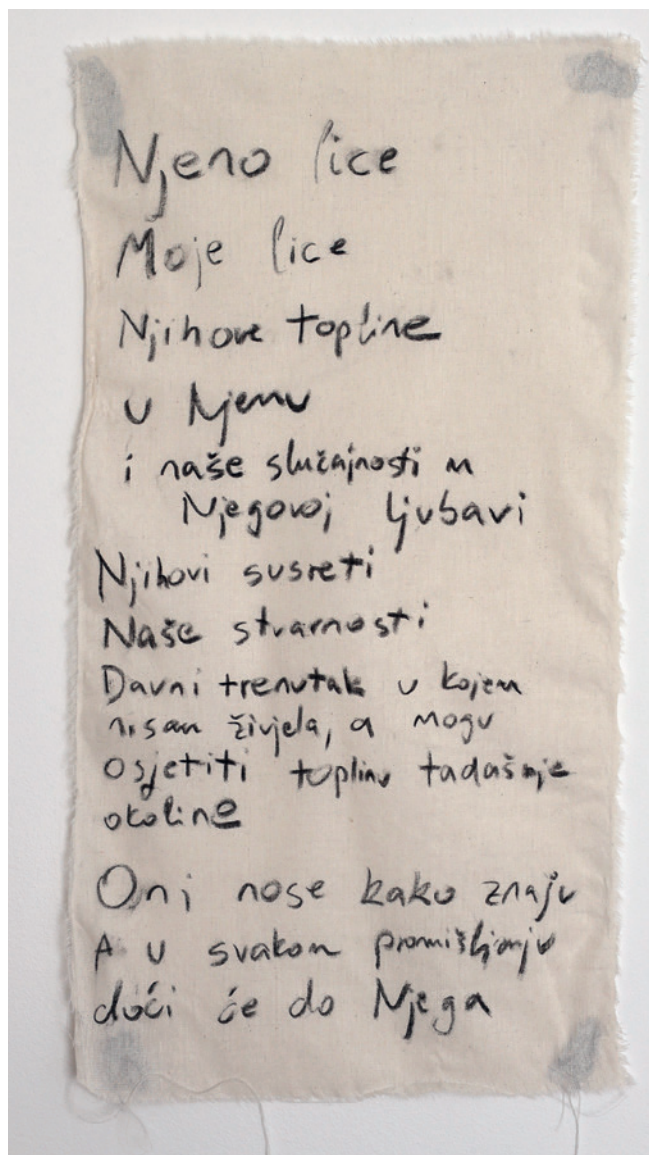 Njeno lice
Moje lice
Njihove topline
u Njemu
i naše slučajnosti u
Njegovoj ljubavi
Njihovi susreti
Naše stvarnosti
Davni trenutak u kojem
nisam živjela, a mogu
osjetiti toplinu tadašnje
okoline
Oni nose kako znaju
A u svakom promišljanju
doći će do Njega